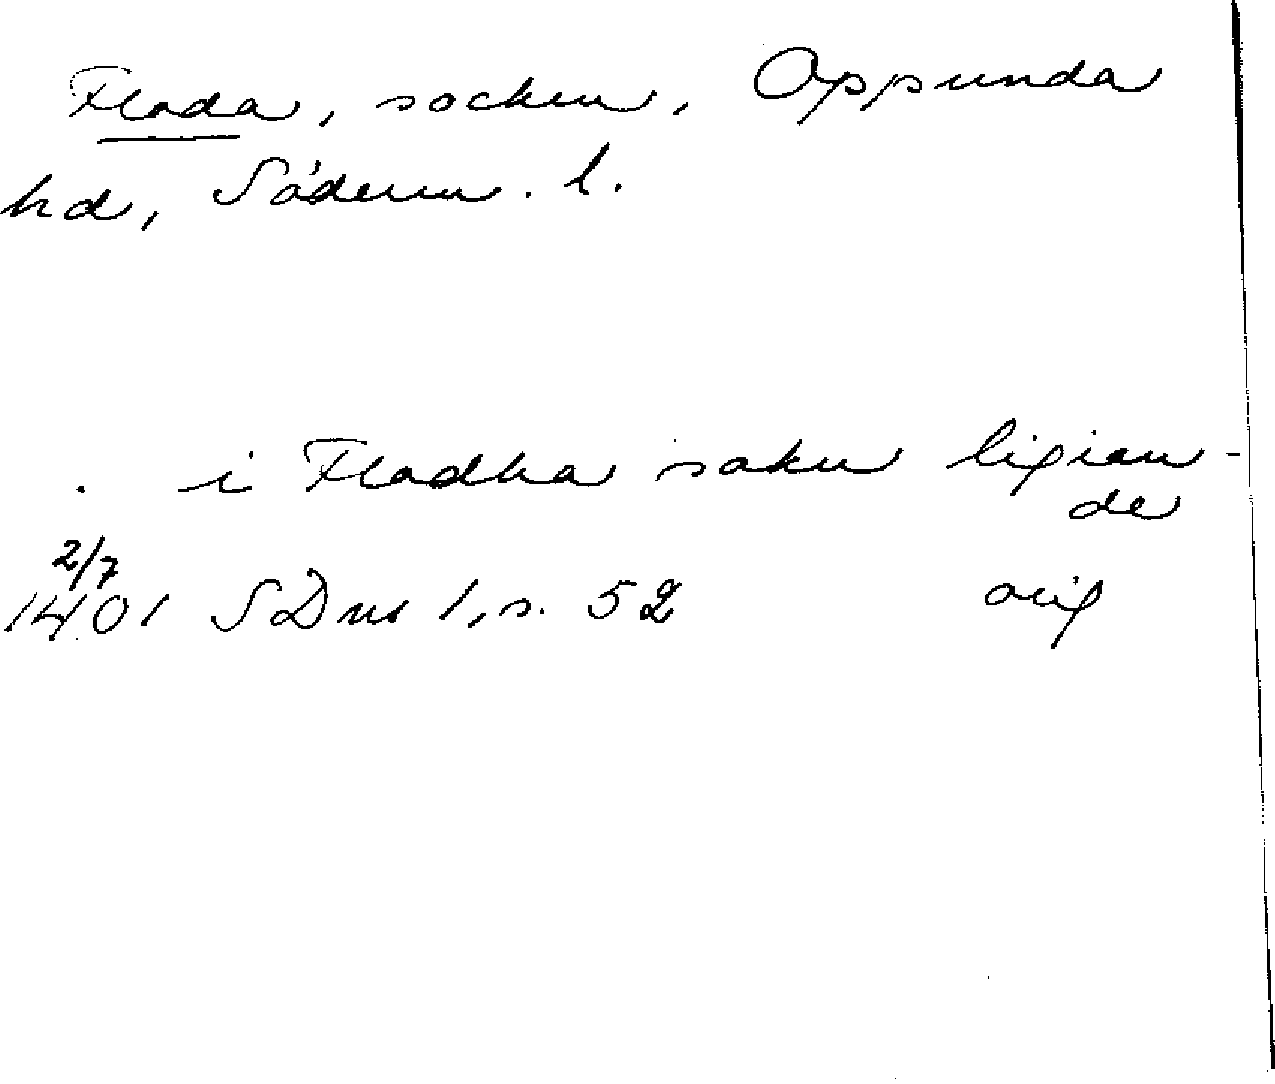 Floda, socken, Oppunda
hd, Söderm. l.
i Flodha sokn ligian-
de
2/7
1401 SDns 1, s. 52 orig